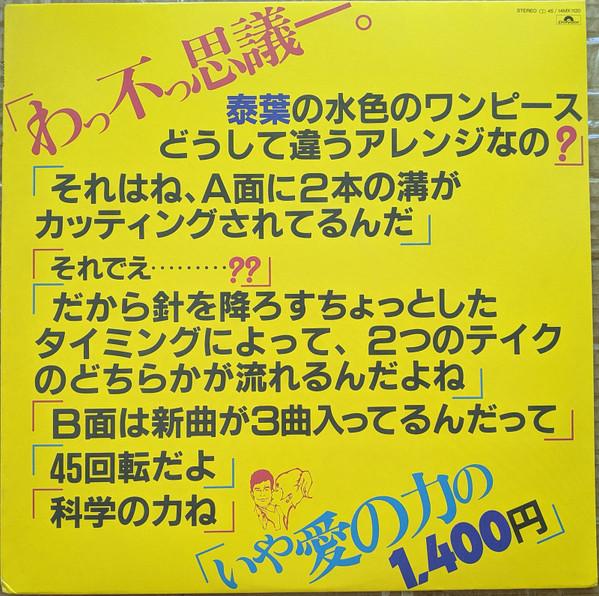 STEREO 45 / 14MX1120
polydor
「わっ不っ思議ー。
泰葉の水色のワンピース
どうして違うアレンジなの?」
「それはね、A面に2本の溝が
カッティングされてるんだ」
「それでえ………??」
「だから針を降ろすちょっとした
タイミングによって、2つのテイク
のどちらかが流れるんだよね」
「B面は新曲が3曲入ってるんだって」
「45回転だよ」
「科学の力ね」
「いや愛の力の
1,400円」